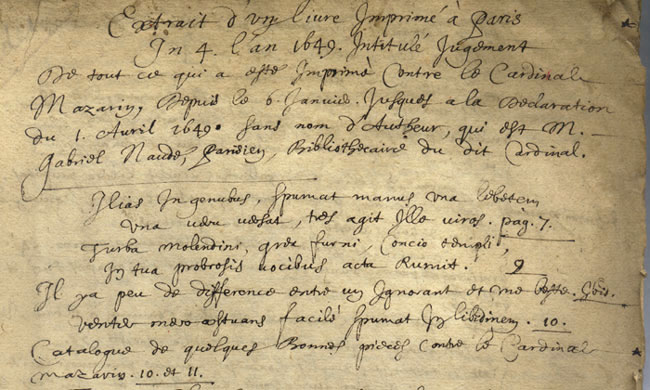 Extrait d'un livre Imprimé à Paris
In 4. l'an 1649. Intitulé Jugement
De tout ce qui a esté Imprimé Contre le Cardinal
Mazarin, Depuis le 6. Janvier. Jusques a la Declaration
du 1. Avril 1649. sans nom d'Autheur, qui est M.
Gabriel Naudé, Parisien, Bibliothecaire du dit Cardinal.
Ilias In genubus, spumat manus una lebetem
una veru versat, tres agit Ille viros. pag. 7.
Turba molendini, grex furni, Concio templi,
In tua probrosis vocibus acta Ruunt. 9
Il y a peu de difference entre un Ignorant et une beste. Ibid.
venter mero æstuans facilé spumat In libidinem. 10.
Catalogue de quelques Bonnes pieces contre le Cardinal
Mazarin. 10. et 11.